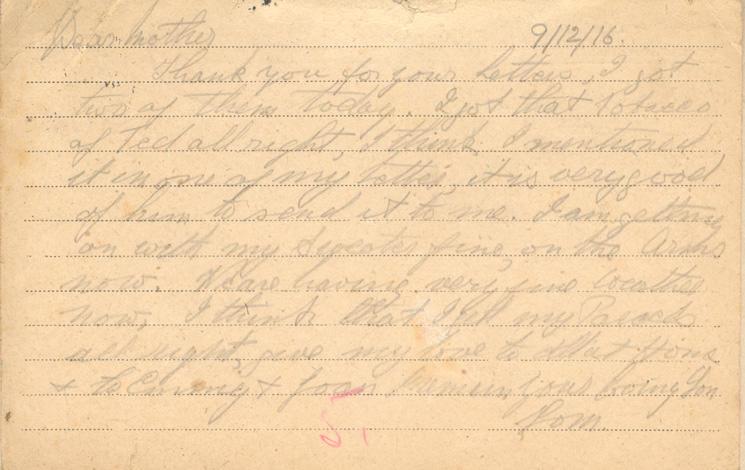 Dear mother 9/12/16.
Thank you for your letters, I got
two of them today. I got that Tobacco
of Ted all right, I think I mentioned
it in one of my letters, it is very good
of him to send it to me. I am getting
on with my Sweater fine, on the Arms
now. We are having very fine weather
now, I think that I got my Parcels
all right, give my love to all at Home
& to & Joan Remain your loving Son
Tom.
5.